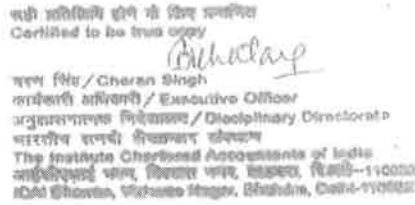 सही प्रतिलिपि होने के लिए प्रमाणित
Certified to be true copy
चरण सिंह / Charan Singh
कार्यकारी अधिकारी / Executive Officer
अनुशासनात्मक निदेशालय / Disciplinary Directorate
भारतीय सनदी लेखाकार संस्थान
The Institute Chartered Accountants of India
आईसीएआई भवन, विश्वास नगर, शाहदरा, दिल्ली-110032
ICAI Bhawan, Vishwas Nagar, Shahdra, Delhi-110032